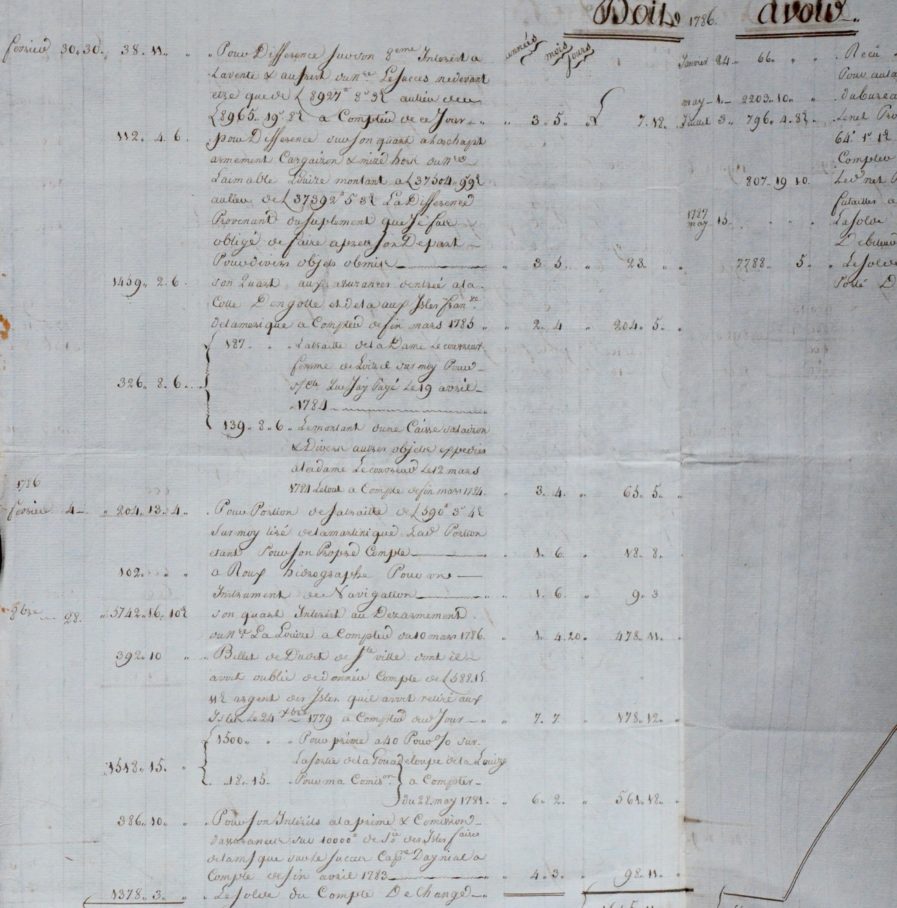 Doit 1786 avoir
années mois jours
février 30. 30. 38. 11. Pour Difference sur son 8eme Interest a
La vente & au pret du nre Le Succes
etre que de £ 8927 8s 3d au lieu de
£ 8965. 19s. 8d a Compter de ce Jour 3. 5. 7. 12.
112. 4. 6 pour Difference sur son quart a l'achapt
armement Cargaison & mise hors du nre
L'aimable Louize montant a £ 37504. 9s 9d
au lieu de £ 37392 5s 3d La Difference
Provenant du suplement que J'é fait
obligé de faire apres son Depart
Pour divers objets obmis 3 5. 23.
1459. 2. 6. son Quart aux assurances d'entrée a la
Cotte D'engolle et de la aux Isles fran.
de l'amerique a Compter de fin mars 1785 2. 4 204. 5.
326. 8. 6. 187. La traitte de la Dame Le couvreur
femme de sur moy Pour
s/Cte Que J'ay Payé Le 19 avril
1784
139. 8. 6. Le montant d'une Caisse
& Divers autres objets
a la dame Le couvreur Le 12 mars
1784 Le tout a Compter de fin mars 1784 3. 4. 65. 5.
1786
février 4 204. 13. 4 Pour Portion de sa traitte de £ 590 3s 4d
sur moy tiré de la martinique Lad. Portion
étant Pour son Propre Compte 1. 6. 18. 8.
102. a Roux hidrographe Pour une
Instrument de Navigation 1. 6. 9. 3
9bre 28. 5742. 16. 10 son quart Interest au Dezarmement
du Nre La Louize a Compter du 10 mars 1786. 1. 4. 20 478. 11.
392. 10 Billet de de ville dont il
avoit oublié de donner Compte de
argent des Isles qu'il avoit retiré aux
Isles Le 24 xbre 1779 a Compter du Jour 7. 7. 178. 12.
1518. 15. 1500. Pour prime a 40 Pour % sur
La sortie de la Guadeloupe de la Louize
18. 15. Pour ma Comion a Compter
du 28 may 1781. 6. 2. 561. 18.
386. 10. Pour son Interêts a la prime & Comission
d'assurances sur 10000 de des Isles faire
sur le Succes Cape Dayniat a
Compte de fin avril 1783 4. 3. 98. 11.
1378. 3. Le solde du Compte De Change
Janvier 24 66. Recu
Pour
may 1. 2203. 10. du bureau
Juillet 3. 796. 4. 8 Le net Pro
Compter
807. 19 10. Le net P
futailles a
1787
may 15. Le solde
Debiteur
7788. 5. Le solde